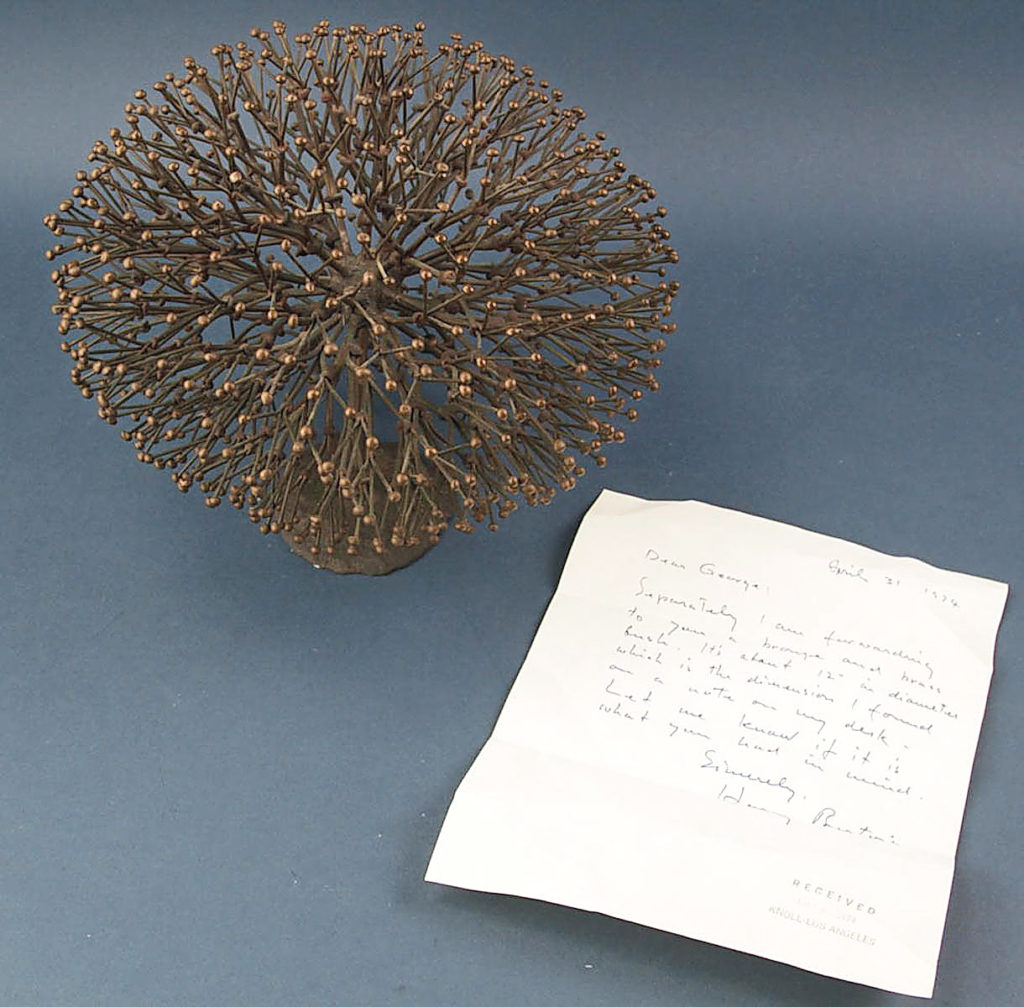 April 31 1974
Dear George,
Separately I am forwarding
to you a bronze and brass
bush. It's about 12" in diameter
which is the dimension I found
on a note on my desk -
Let me know if it is
what you had in mind.
Sincerely,
Harry Bertoia
RECEIVED
KNOLL-LOS ANGELES